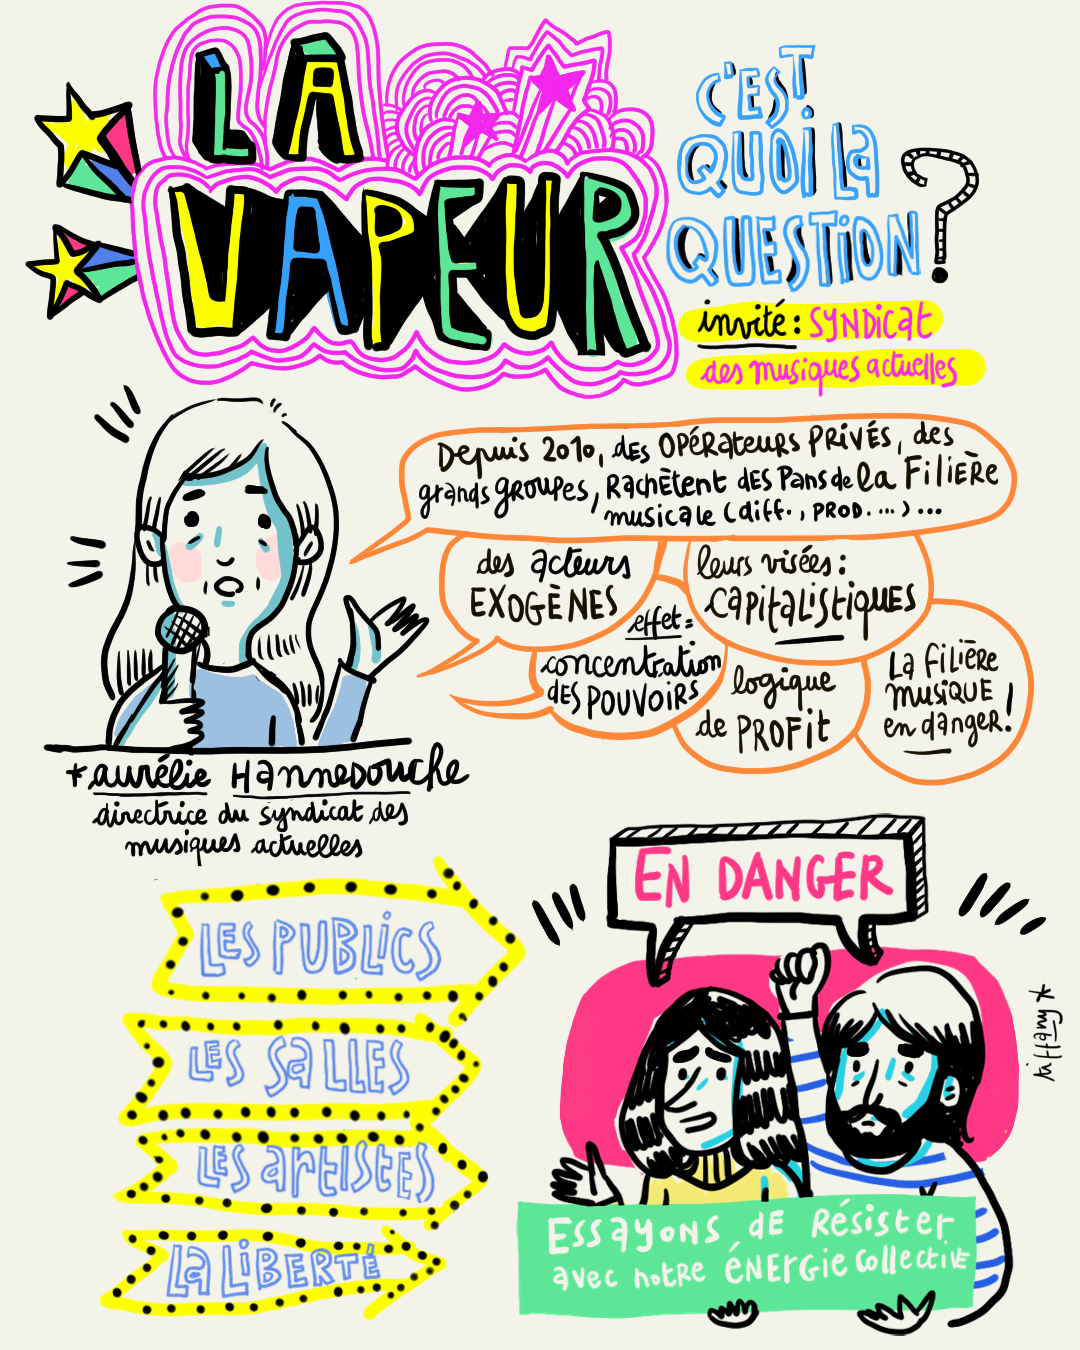 LA
VAPEUR
C'EST
QUOI LA
QUESTION ?
invité : SYNDICAT
des musiques actuelles
Depuis 2010, des OPÉRATEURS PRIVÉS, des
grands groupes, RACHÈTENT DES PANS de la FILIÈRE
musicale (diff., PROD. ...) ...
des acteurs
EXOGÈNES
leurs visées :
CAPITALISTIQUES
effet =
concentration
DES POUVOIRS
logique
de PROFIT
LA FILIÈRE
MUSIQUE
en danger !
* aurélie HANNEDOUCHE
directrice du syndicat des
musiques actuelles
EN DANGER
LES PUBLICS
LES SALLES
LES ARTISTES
LA LIBERTÉ
ESSAYONS DE RÉSISTER
avec notre ÉNERGIE collective
tiffany *